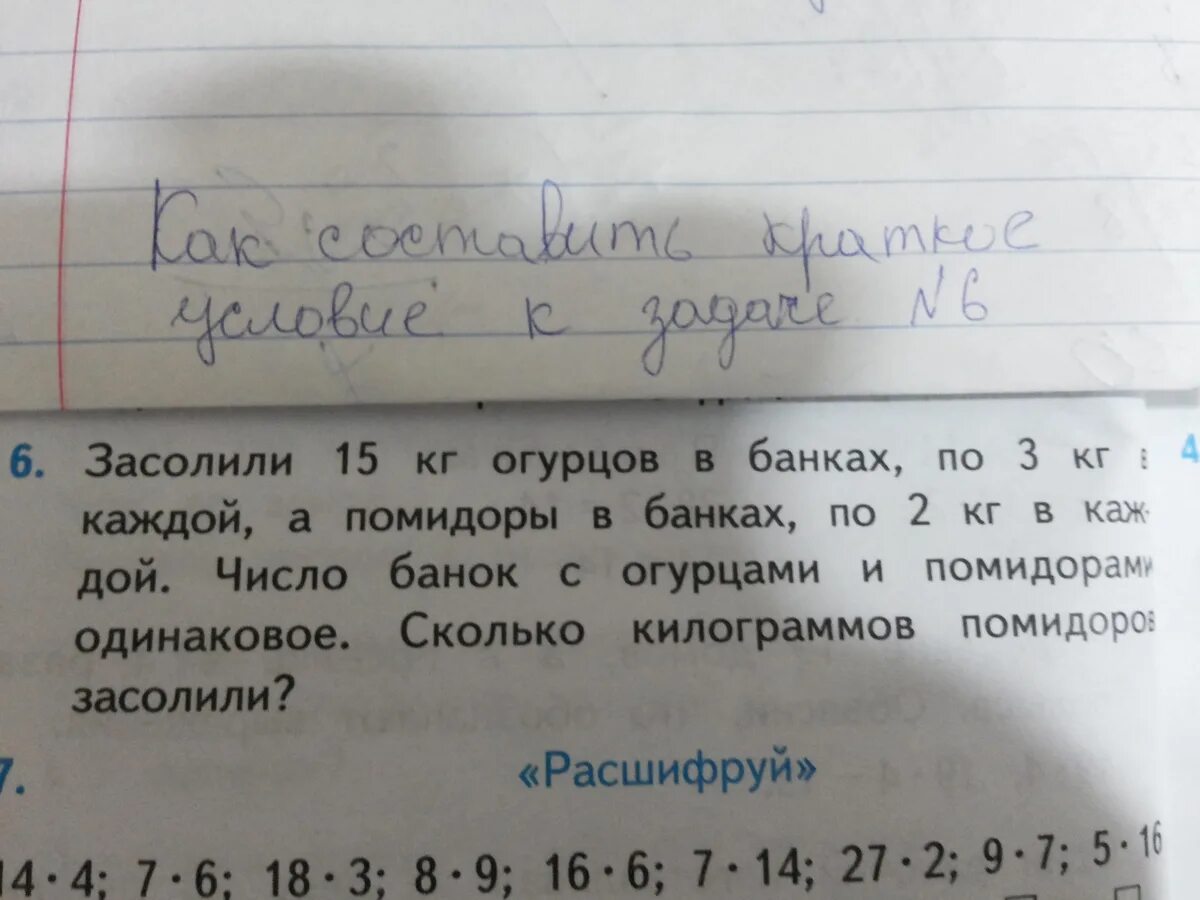 Как составить краткое
условие к задаче №6
6. Засолили 15 кг огурцов в банках, по 3 кг в 4
каждой, а помидоры в банках, по 2 кг в каж-
дой. Число банок с огурцами и помидорами
одинаковое. Сколько килограммов помидоров
засолили?
7. «Расшифруй»
14 · 4; 7 · 6; 18 · 3; 8 · 9; 16 · 6; 7 · 14; 27 · 2; 9 · 7; 5 · 16